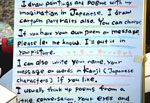 I draw paintings and poems with my
imagination in Japanese. I draw
cartoon portraits also. You can choose.
If you have your own poem or message,
please let me know. I'll put it in
your picture.
I can also write your name, your
message or words in Kanji (Japanese
characters) if you like.
I usually think up poems from a
little conversation, your eyes and